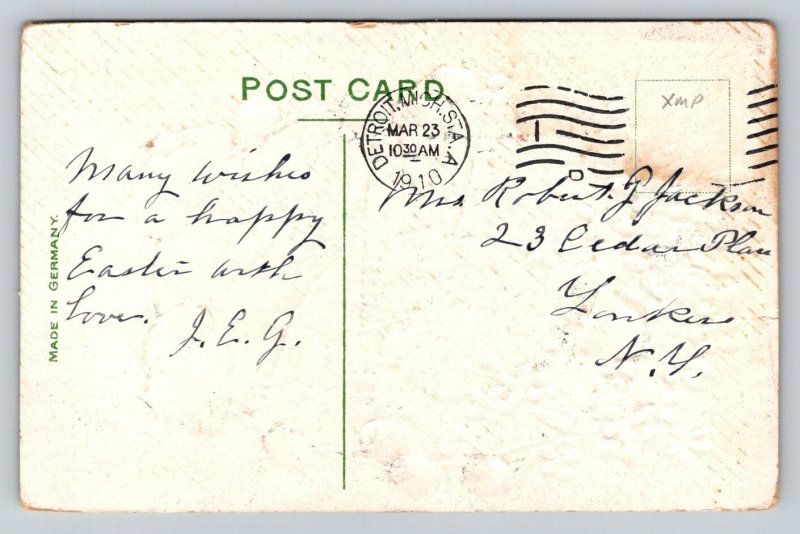 POST CARD
DETROIT, MICH. STA. A
MAR 23
10 30 AM
1910
XMP
MADE IN GERMANY.
Many wishes
for a happy
Easter with
love.
J. E. G.
Mrs Robert J Jackson
23 Cedar Place
Yonkers
N. Y.